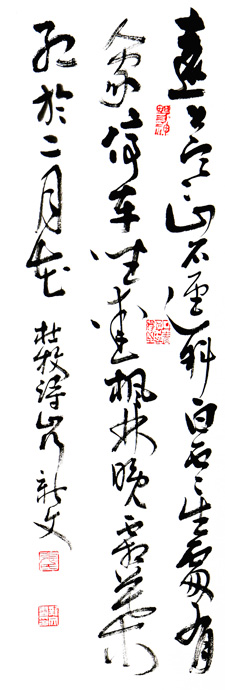 遠上寒山石徑斜白雲生處有
人家停車坐愛楓林晚霜葉
紅於二月花 杜牧詩山行 新文